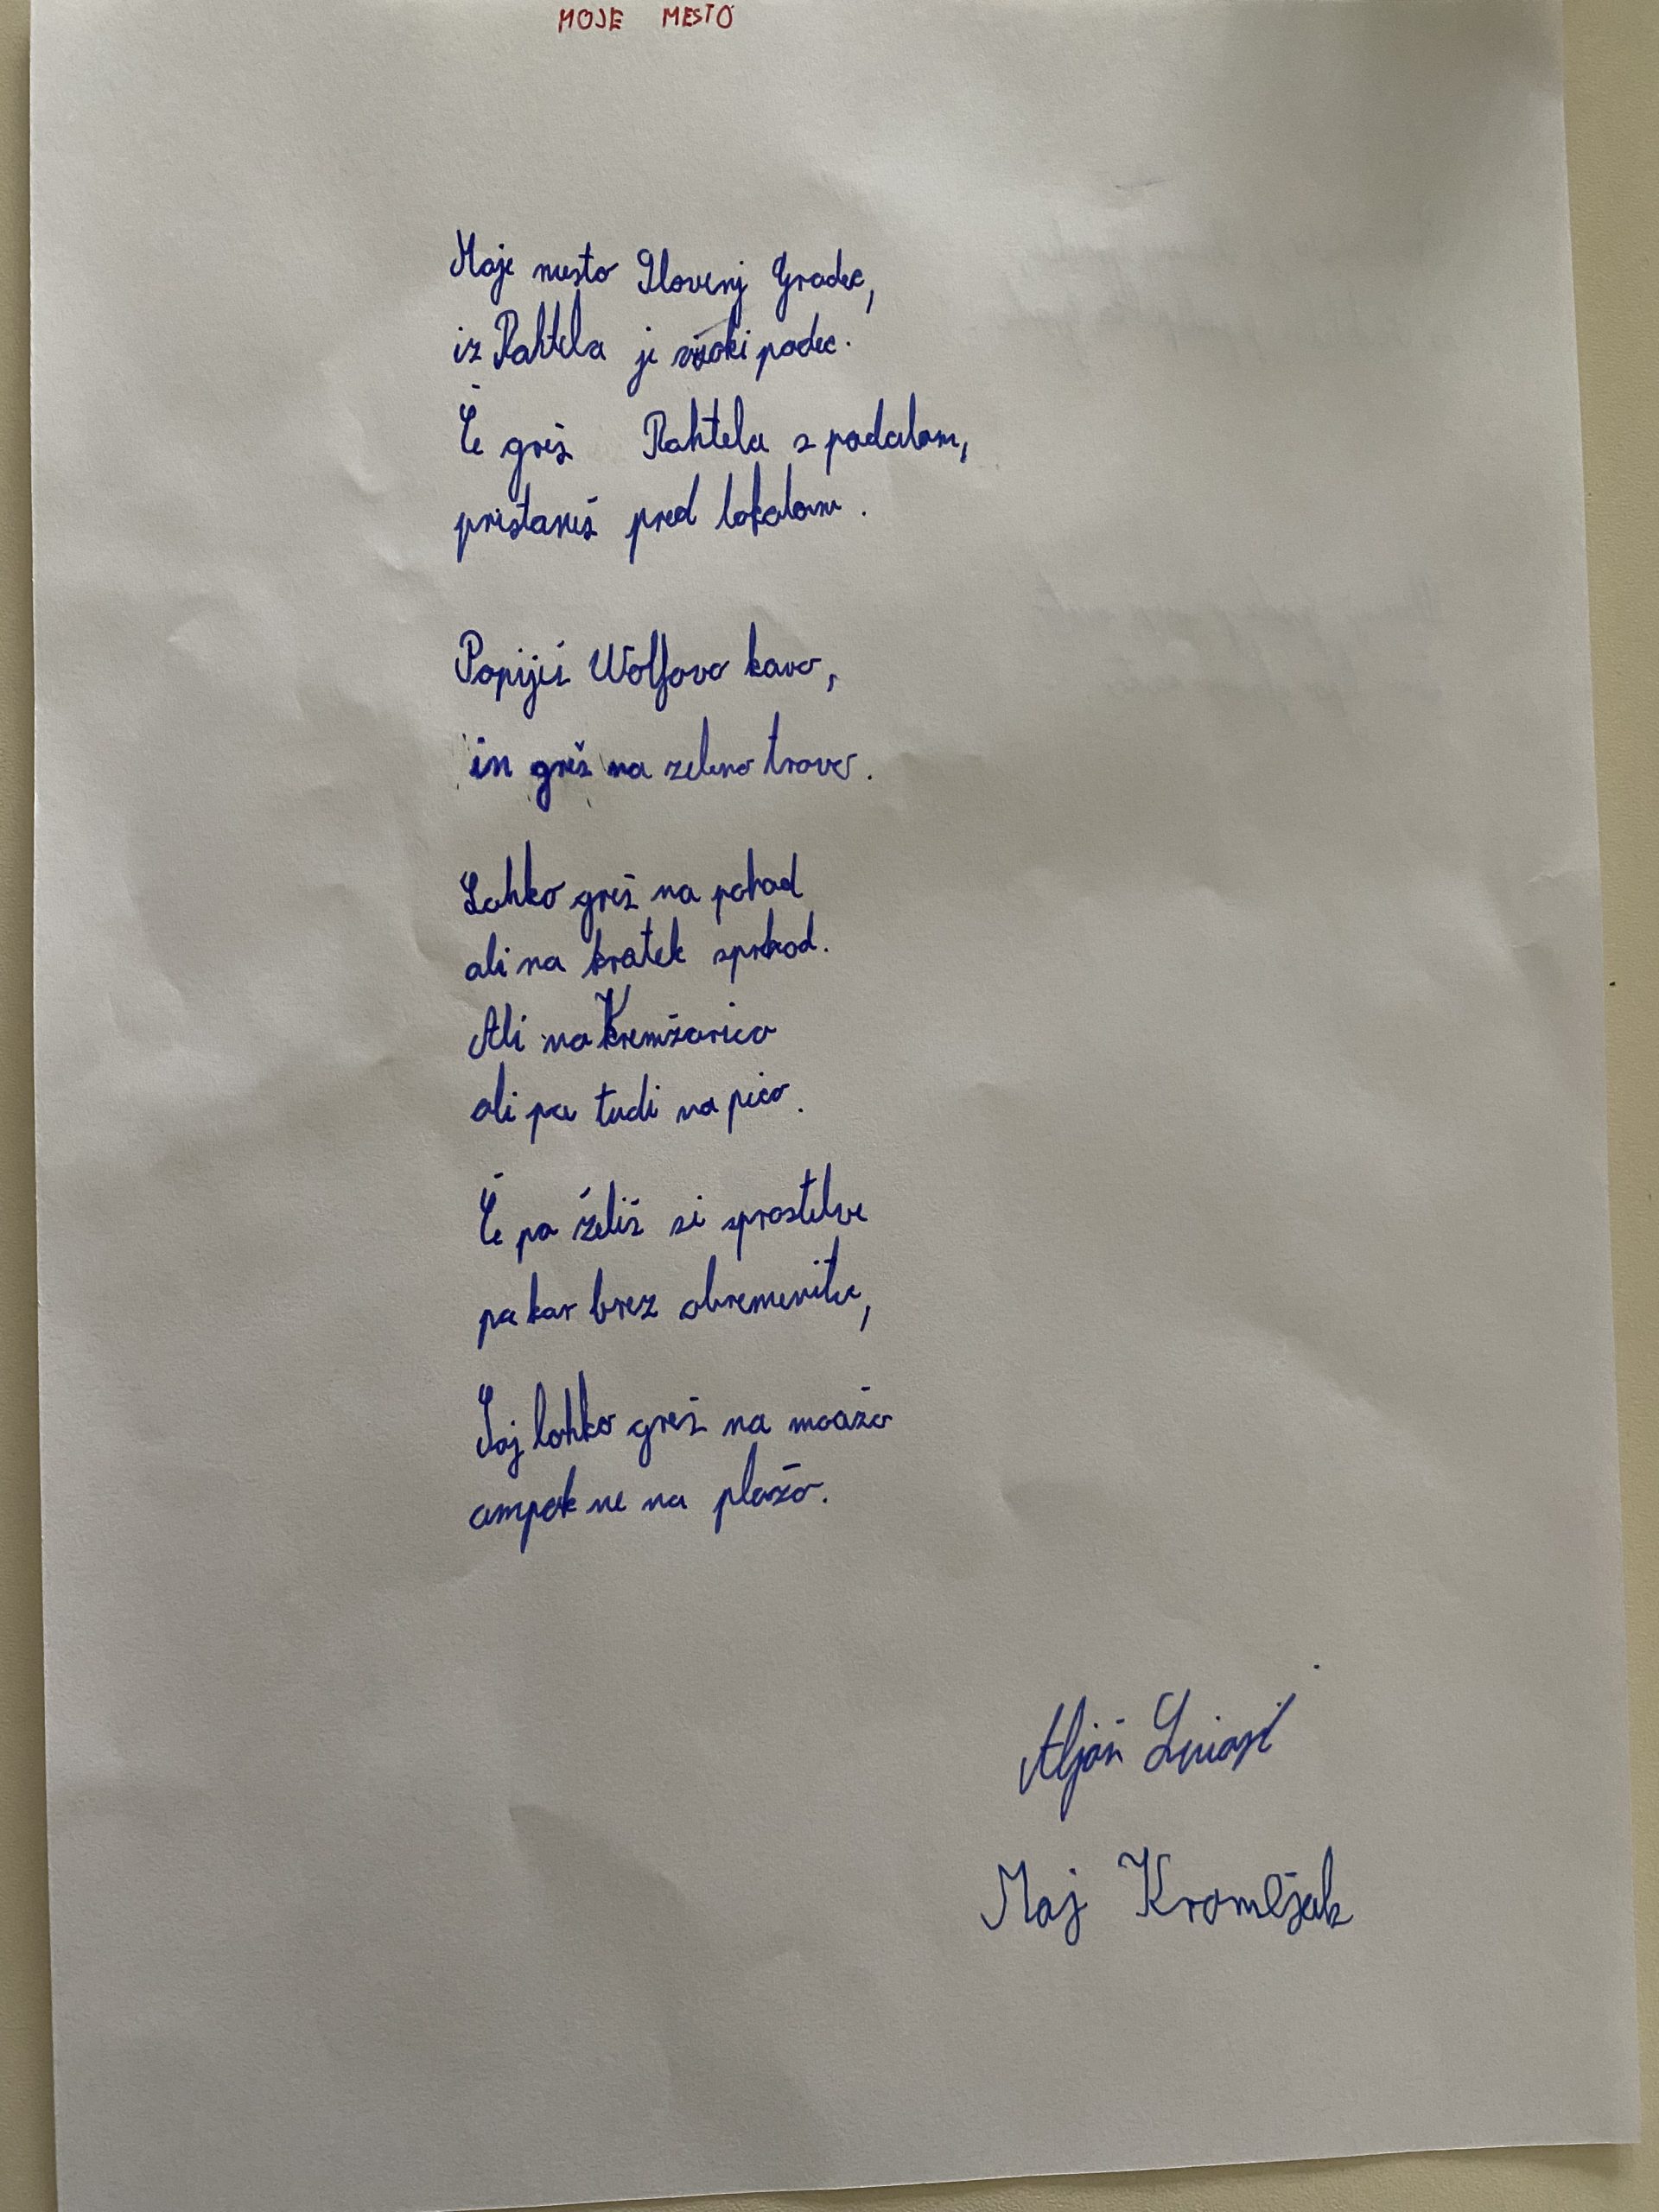 MOJE MESTO
Moje mesto Slovenj Gradec,
iz Rahtela je visoki padec.
Če greš Rahtela s padalom,
pristaneš pred lokalom.
Popiješ Wolfovo kavo,
in greš na zeleno travo.
Lahko greš na pohod
ali na kratek sprehod.
Ali na Kremžarico
ali pa tudi na pico.
Če pa želiš si sprostitve
pa kar brez obremenitve,
Saj lahko greš na masažo
ampak ne na plažo.
Aljaž
Maj Kromljak